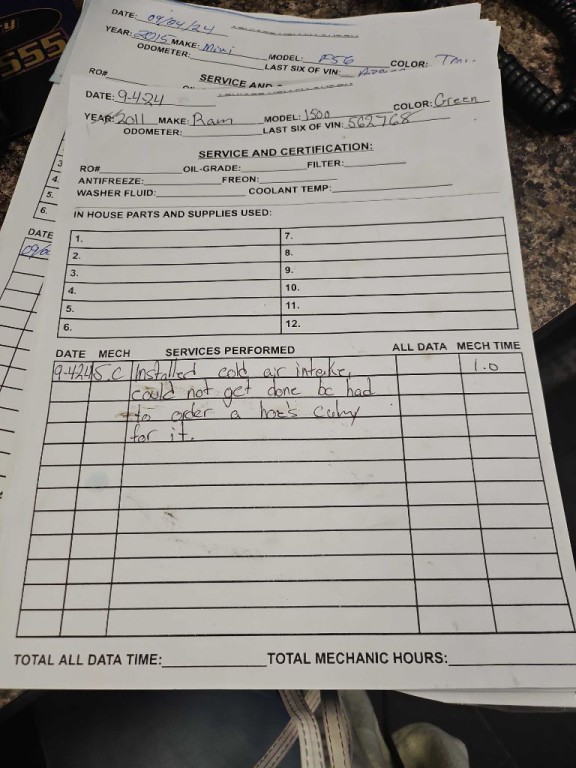 555
DATE: 09/04/24
YEAR: 2015 MAKE: Mini MODEL: F56 COLOR:
ODOMETER: LAST SIX OF VIN:
RO# SERVICE AND
DATE: 9-4-24
YEAR: 2011 MAKE: Ram MODEL: 1500 COLOR: Green
ODOMETER: LAST SIX OF VIN: 562768
SERVICE AND CERTIFICATION:
RO# OIL-GRADE: FILTER:
ANTIFREEZE: FREON:
WASHER FLUID: COOLANT TEMP:
IN HOUSE PARTS AND SUPPLIES USED:
1. 7.
2. 8.
3. 9.
4. 10.
5. 11.
6. 12.
DATE MECH SERVICES PERFORMED ALL DATA MECH TIME
9-4-24 S.C Installed cold air inteke, 1.0
could not get done bc had
to order a hoe's
for it.
TOTAL ALL DATA TIME: TOTAL MECHANIC HOURS:
3.
4.
5.
6.
DATE